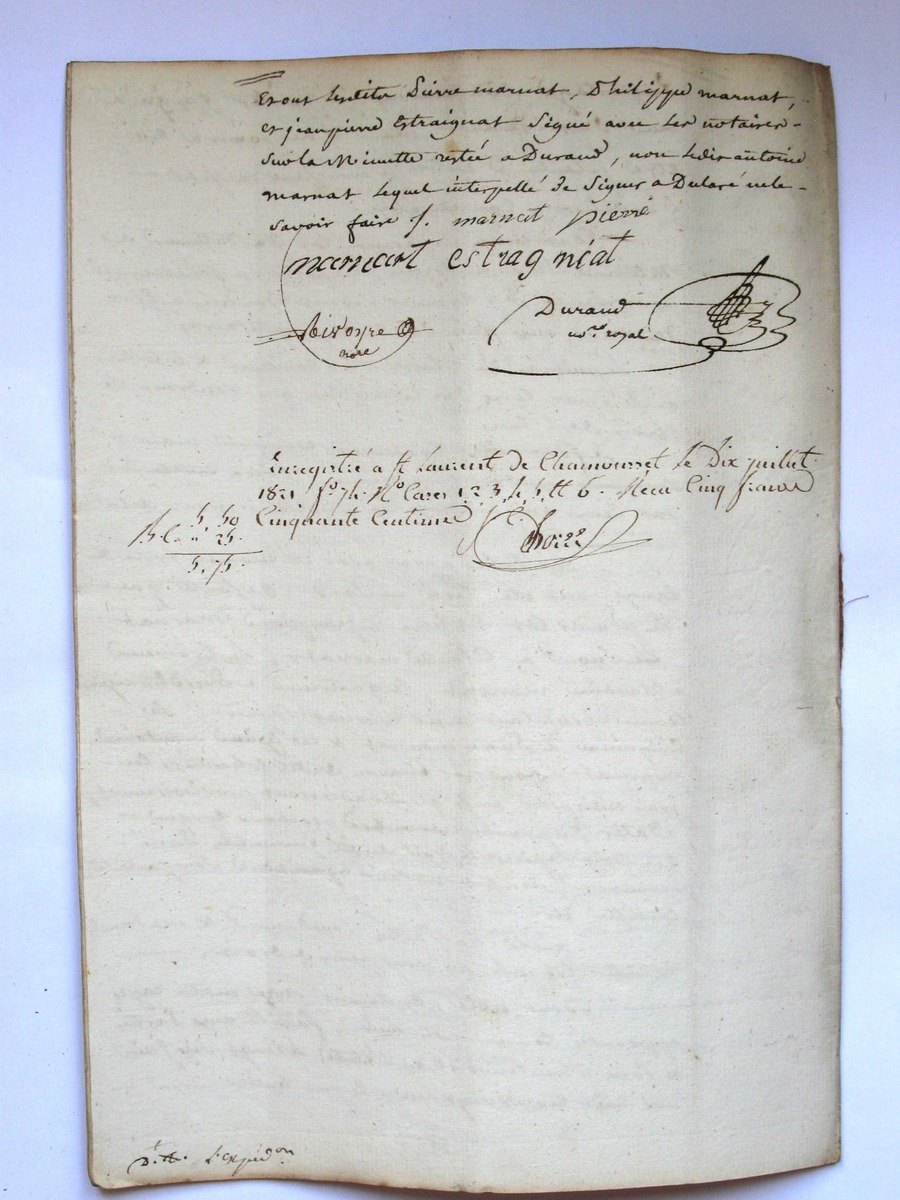 et ont lesdits Pierre marnat, Philippe marnat,
et jeanpierre Estraignat Signé avec les notaires -
Sur la Minutte restée a Durand, non ledit antoine
marnat lequel interpellé de Signer a Declaré ne le -
savoir faire f. marnat pierre
marnat estragniat
Durand
no.re royal
nore
Enregistré a St Laurent de Chamousset le Dix juillet
1821 fo 74 Ro Cases 1, 2, 3, 4, 5 et 6. Reçu Cinq francs
Cinquante Centimes
5 50
25
5. 75
L'expédon